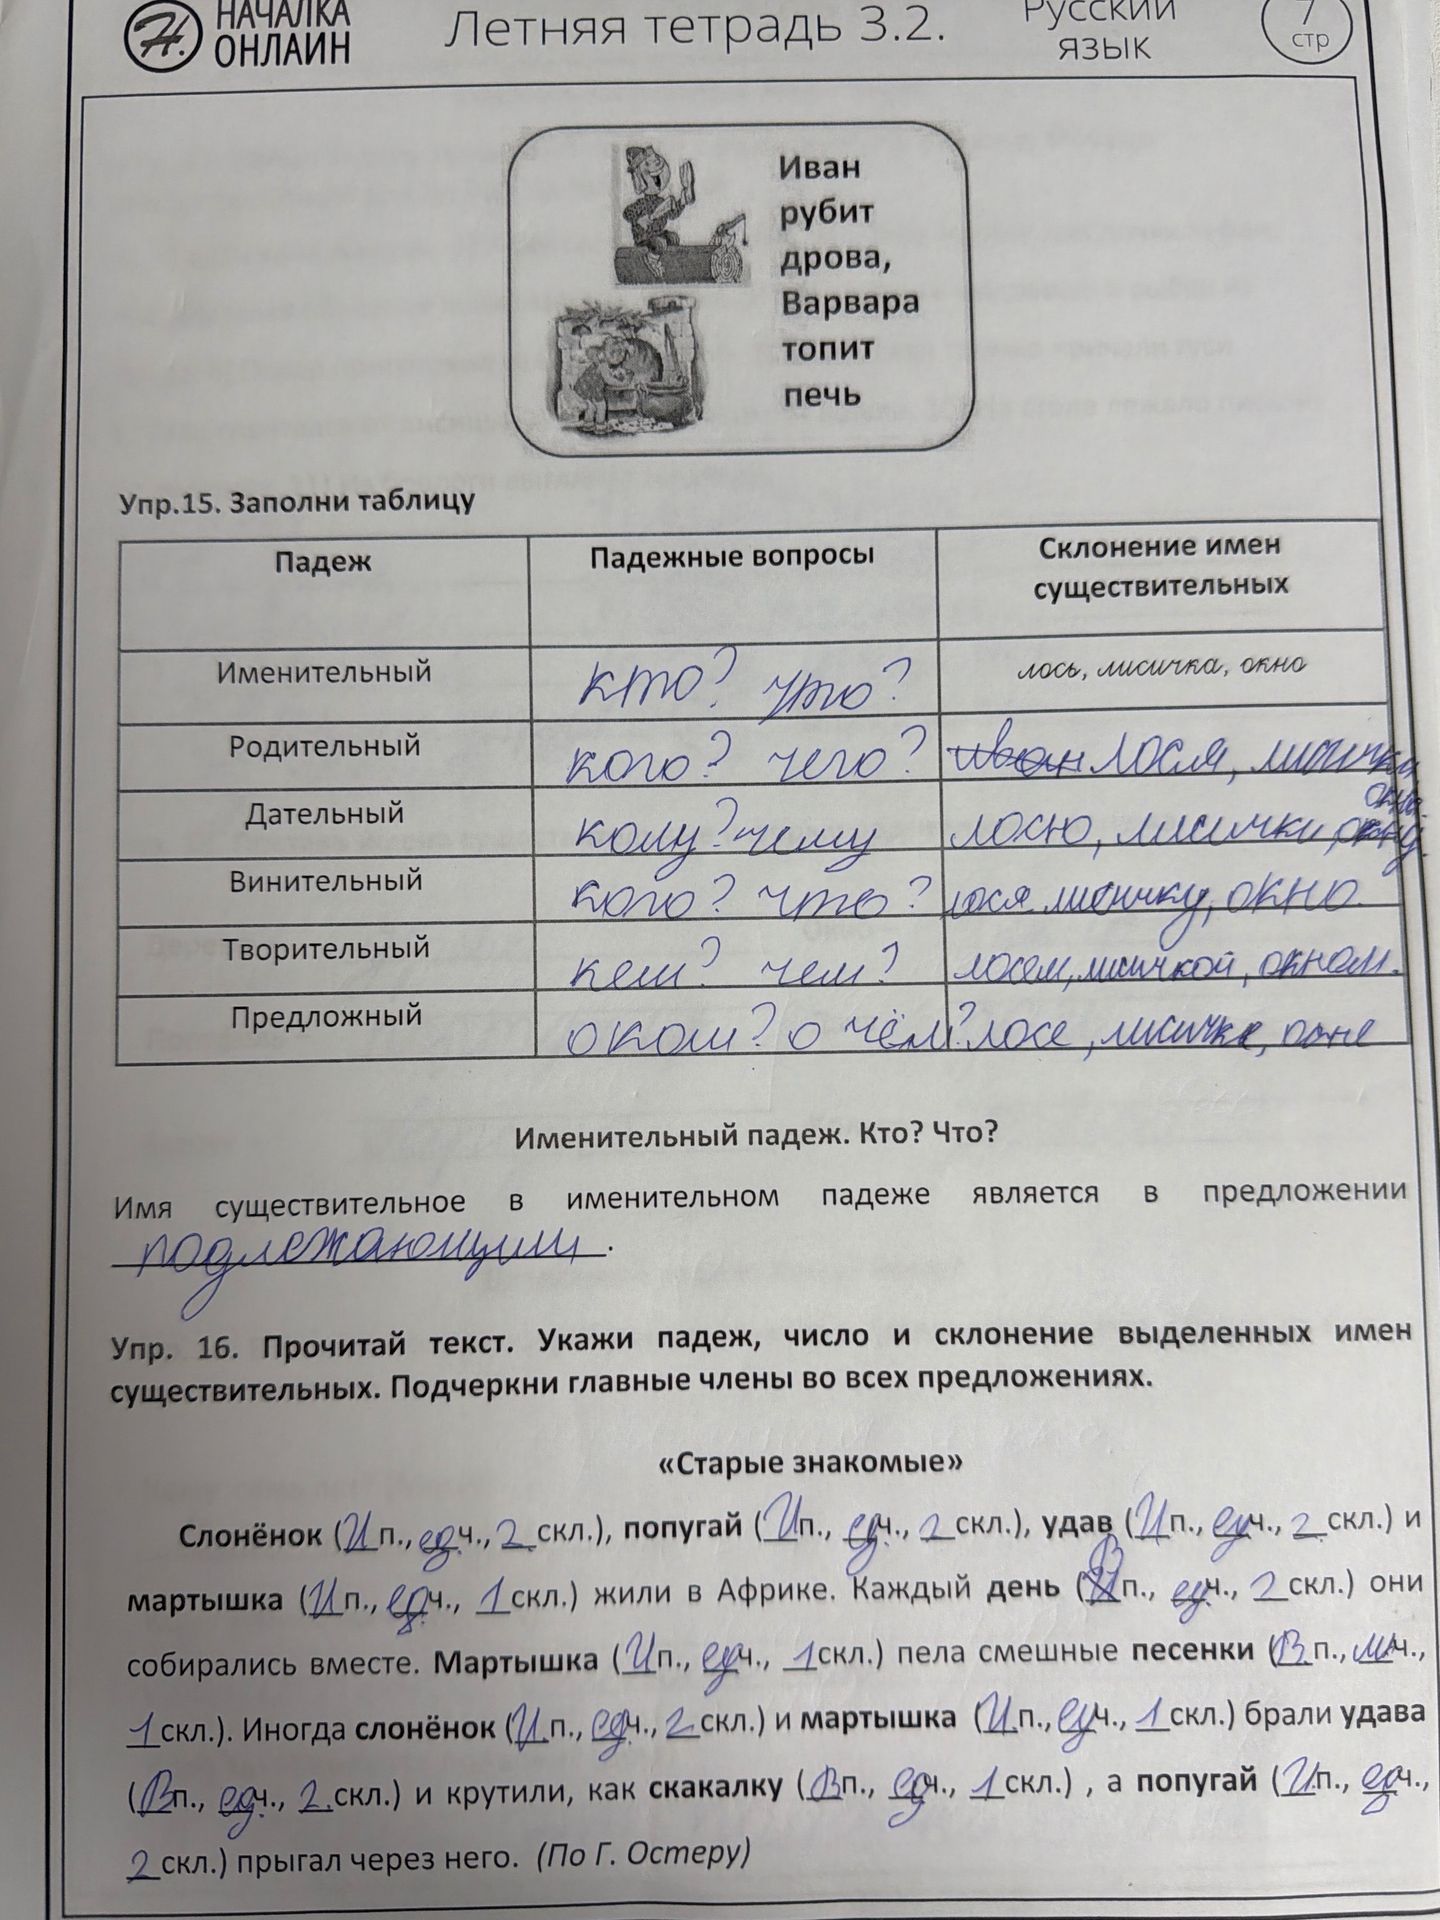 НАЧАЛКА
ОНЛАЙН
Летняя тетрадь 3.2.
Русский
язык
7
стр
Иван
рубит
дрова,
Варвара
топит
печь
Упр.15. Заполни таблицу
Падеж Падежные вопросы Склонение имен существительных
Именительный кто? что? лось, лисичка, окно
Родительный кого? чего? иван лося, лисички окна.
Дательный кому? чему лосю, лисички, окну.
Винительный кого? что? лося лисичку, окно.
Творительный кем? чем? лосем, лисичкой, окном.
Предложный о ком? о чём? лосе, лисичке, окне
Именительный падеж. Кто? Что?
Имя существительное в именительном падеже является в предложении
подлежающим.
Упр. 16. Прочитай текст. Укажи падеж, число и склонение выделенных имен
существительных. Подчеркни главные члены во всех предложениях.
«Старые знакомые»
Слонёнок (И п., ед ч., 2 скл.), попугай (И п., ед ч., 2 скл.), удав (И п., ед ч., 2 скл.) и
мартышка (И п., ед ч., 1 скл.) жили в Африке. Каждый день (В п., ед ч., 2 скл.) они
собирались вместе. Мартышка (И п., ед ч., 1 скл.) пела смешные песенки (В п., мн ч.,
1 скл.). Иногда слонёнок (И п., ед ч., 2 скл.) и мартышка (И п., ед ч., 1 скл.) брали удава
(В п., ед ч., 2 скл.) и крутили, как скакалку (В п., ед ч., 1 скл.) , а попугай (И п., ед ч.,
2 скл.) прыгал через него. (По Г. Остеру)